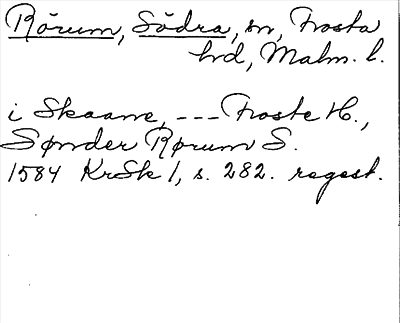 Rörum, Södra, sn, Frosta
hrd, Malm. l.
i Skaane, --- Froste H.,
Sønder Rørum S.
1584 KrSk 1, s. 282. regest.